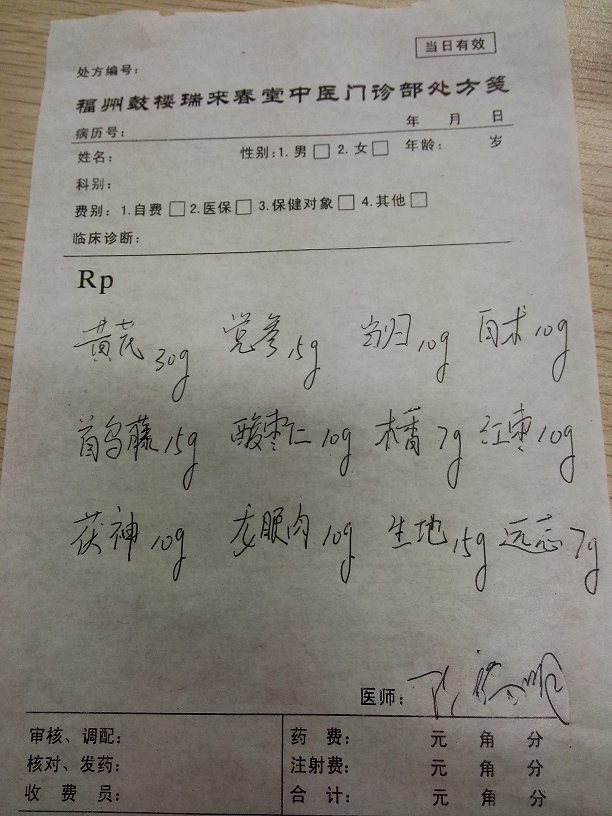 当日有效
处方编号:
福州鼓楼瑞来春堂中医门诊部处方笺
病历号: 年 月 日
姓名: 性别:1.男□ 2.女□ 年龄: 岁
科别:
费别: 1.自费□ 2.医保□ 3.保健对象□ 4.其他□
临床诊断:
Rp
黄芪30g 党参15g 当归10g 白术10g
首乌藤15g 酸枣仁10g 木香7g 红枣10g
茯神10g 龙眼肉10g 生地15g 远志7g
医师:
审核、调配: 药 费: 元 角 分
核对、发药: 注射费: 元 角 分
收 费 员: 合 计: 元 角 分